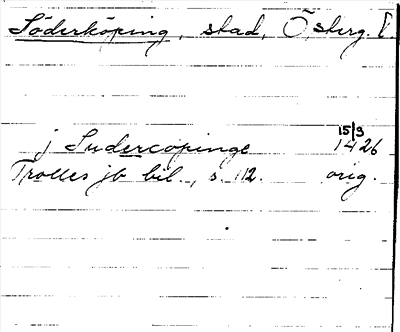 Söderköping, stad, Österg. l.
15/3
j Sudercopinge 1426
Trolles jb bil., s. 112. orig.